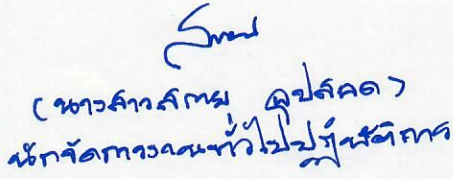 (นางสาวสกาย อุปสคด)
นักจัดการงานทั่วไปปฏิบัติการ